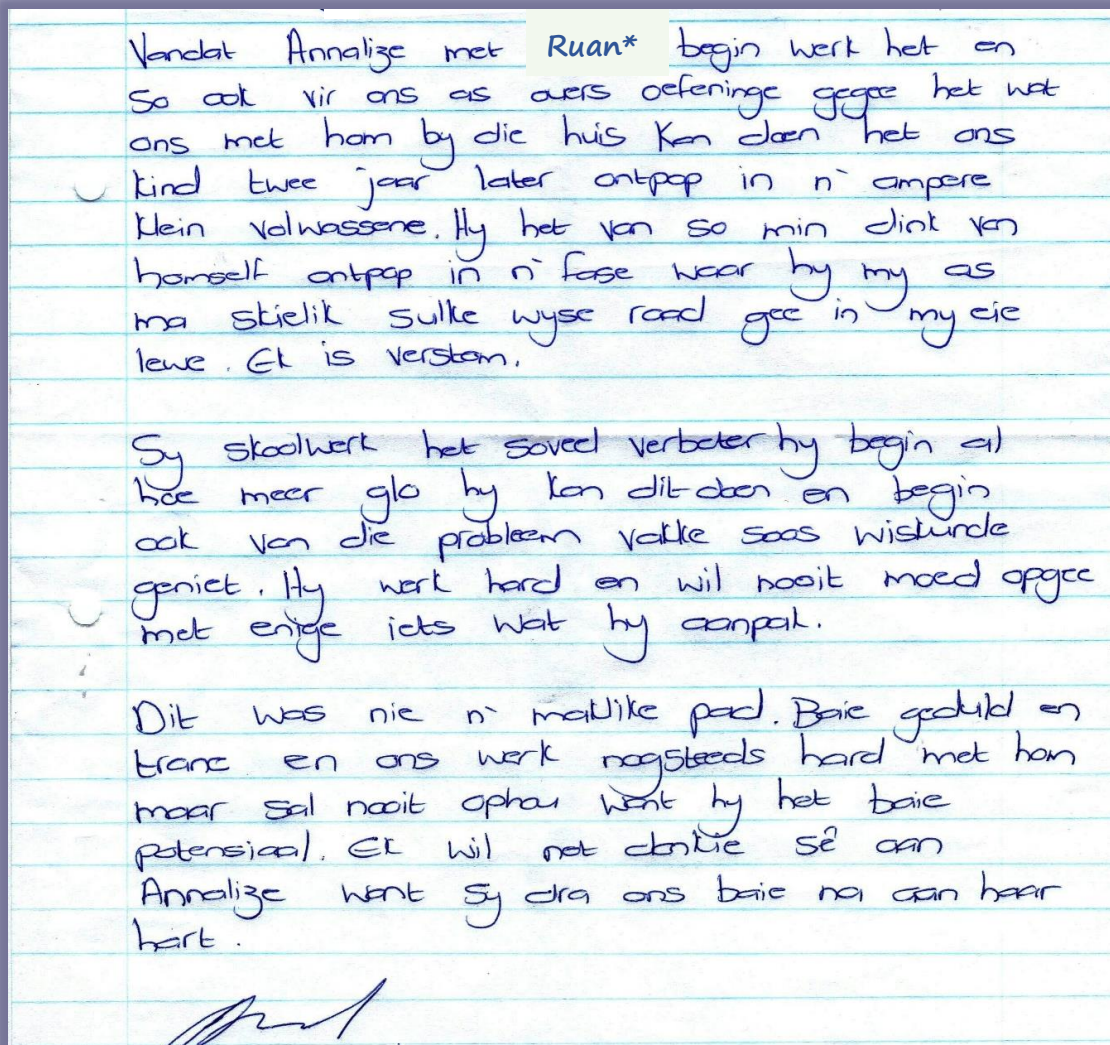 Vandat Annalize met Ruan* begin werk het en
so ook vir ons as ouers oefeninge gegee het wat
ons met hom by die huis kan doen het ons
kind twee jaar later ontpop in n` ampere
klein volwassene. Hy het van so min dink van
homself ontpop in n` fase waar hy my as
ma skielik sulke wyse raad gee in my eie
lewe. Ek is verstom.
Sy skoolwerk het soveel verbeter hy begin al
hoe meer glo hy kan dit doen en begin
ook van die probleem vakke soos wiskunde
geniet. Hy werk hard en wil nooit moed opgee
met enige iets wat hy aanpak.
Dit was nie n` maklike pad. Baie geduld en
trane en ons werk nogsteeds hard met hom
maar sal nooit ophou want hy het baie
potensiaal. Ek wil net dankie sê aan
Annalize want sy dra ons baie na aan haar
hart.